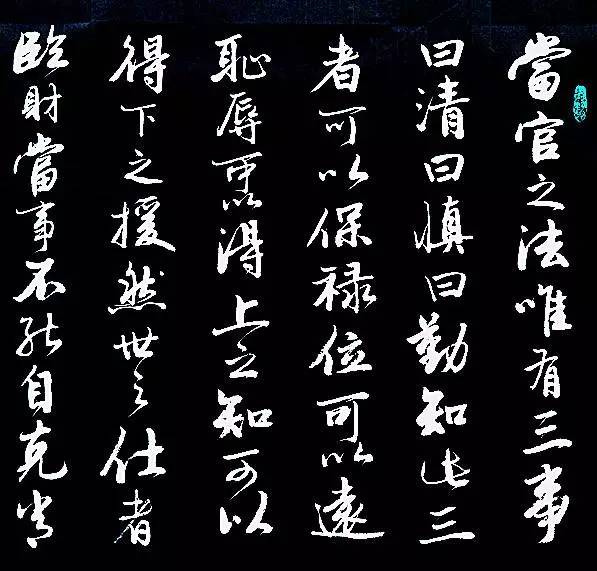 當官之法唯有三事
曰清曰慎曰勤知此三
者可以保禄位可以遠
恥辱可以得上之知可以
得下之援然世之仕者
臨財當事不能自克常